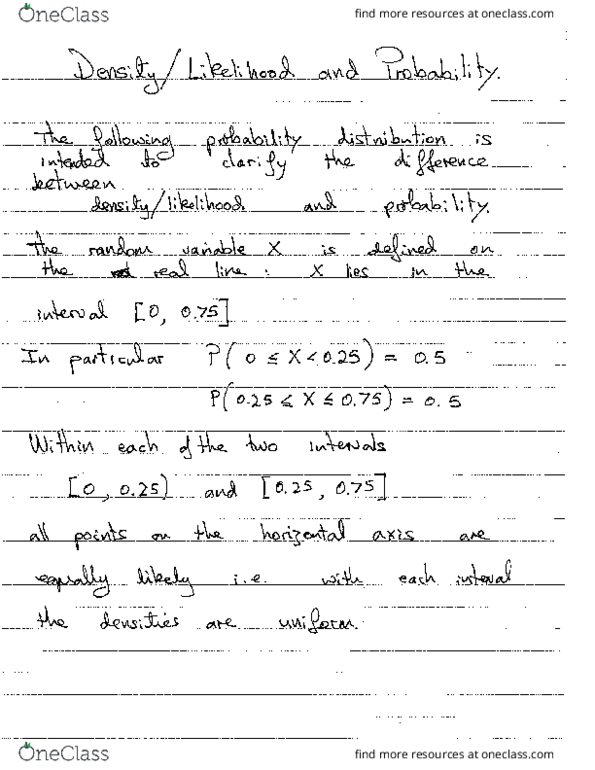 OneClass
find more resources at oneclass.com
Density/Likelihood and Probability.
The following probability distribution is
intended to clarify the difference
between
density/likelihood and probability.
The random variable X is defined on
the real line : X lies in the
interval [0, 0.75]
In particular P( 0 ≤ X < 0.25) = 0.5
P(0.25 ≤ X ≤ 0.75) = 0.5
Within each of the two intervals
[0, 0.25) and [0.25, 0.75]
all points on the horizontal axis are
equally likely i.e. with each interval
the densities are uniform.
OneClass
find more resources at oneclass.com